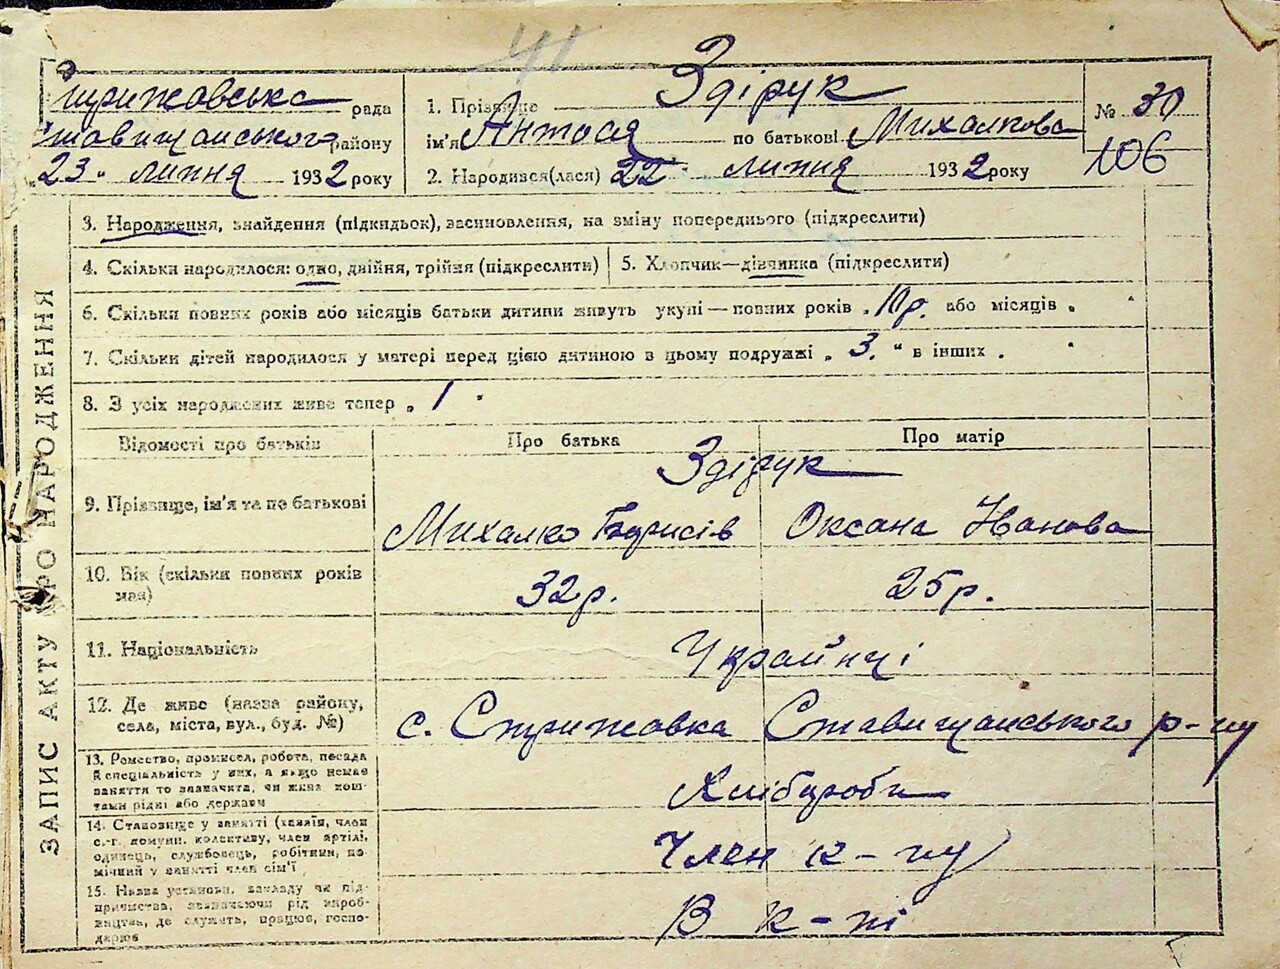 41
Стрижавська рада
Ставищанського району
„23" липня 1932 року
1. Прізвище Здірук
ім'я Антося по батькові Михалкова
2. Народився(лася) 22 липня 1932 року
№ 30
106
ЗАПИС АКТУ ПРО НАРОДЖЕННЯ
3. Народження, знайдення (підкидьок), всиновлення, на зміну попереднього (підкреслити)
4. Скільки народилося: одно, двійня, трійня (підкреслити)
5. Хлопчик—дівчинка (підкреслити)
6. Скільки повних років або місяців батьки дитини живуть укупі — повних років „10р. або місяців „ "
7. Скільки дітей народилося у матері перед цією дитиною в цьому подружжі „3." в інших „ "
8. З усіх народжених живе тепер „1"
Відомості про батьків
Про батька
Про матір
Здірук
9. Прізвище, ім'я та по батькові
Михалко Борисів
Оксана Іванова
10. Вік (скільки повних років
має)
32р.
25р.
11. Національність
Українці
12. Де живе (назва району,
села, міста, вул., буд. №)
с. Стрижавка Ставищанського р-ну
13. Ремество, промисел, робота, посада
й спеціальність у них, а якщо немає
заняття то зазначити, чи жива кош-
тами рідні або держави
Хлібороби
14. Становище у занятті (хазяїн, член
с.-г. комуни, колективу, член артілі,
одинець, службовець, робітник, по-
мічний у занятті член сім'ї
Член к-пу
15. Назва установи, закладу чи під-
приємства, зазначаючи рід вироб-
ництва, де служить, працює, госпо-
дарює
В к-пі